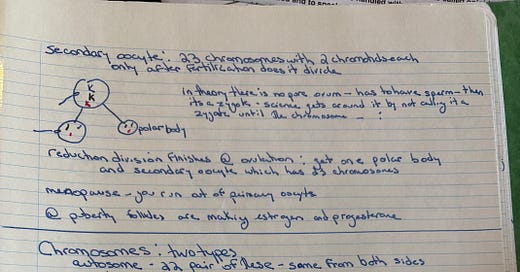 Secondary oocyte: 23 chromosomes with 2 chromatids each
only after fertilization does it divide
in theory there is no pure ovum - has to have sperm - then
its a zygote - science gets around it by not calling it a
zygote until the chromosome
polar body
reduction division finishes @ ovulation: get one polar body
and secondary oocyte which has 23 chromosomes
menopause - you run out of primary oocyte
@ puberty follicles are making estrogen and progesterone
Chromosomes: two types
autosome - 22 pair of these - same from both sides